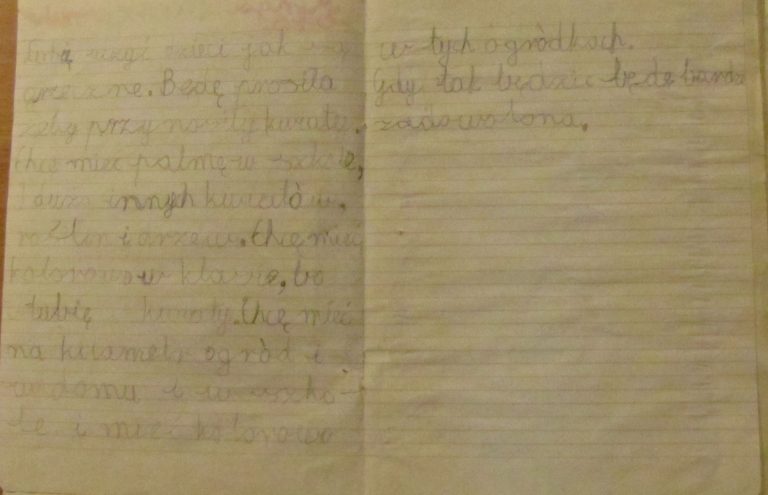 Lubię dzieci jak są
grzeczne. Będę prosiła
żeby przynosiły kwiaty.
Chcę mieć palmę w szkole,
i dużo innych kwiatów,
roślin i drzew. Chcę mieć
kolorowo w klasie, bo
lubię kwiaty. Chcę mieć
na kwiatek ogród i
w domu i w szko-
le i mieć kolorowo
w tych ogródkach.
Gdy tak będzie będę bardzo
zadowolona.